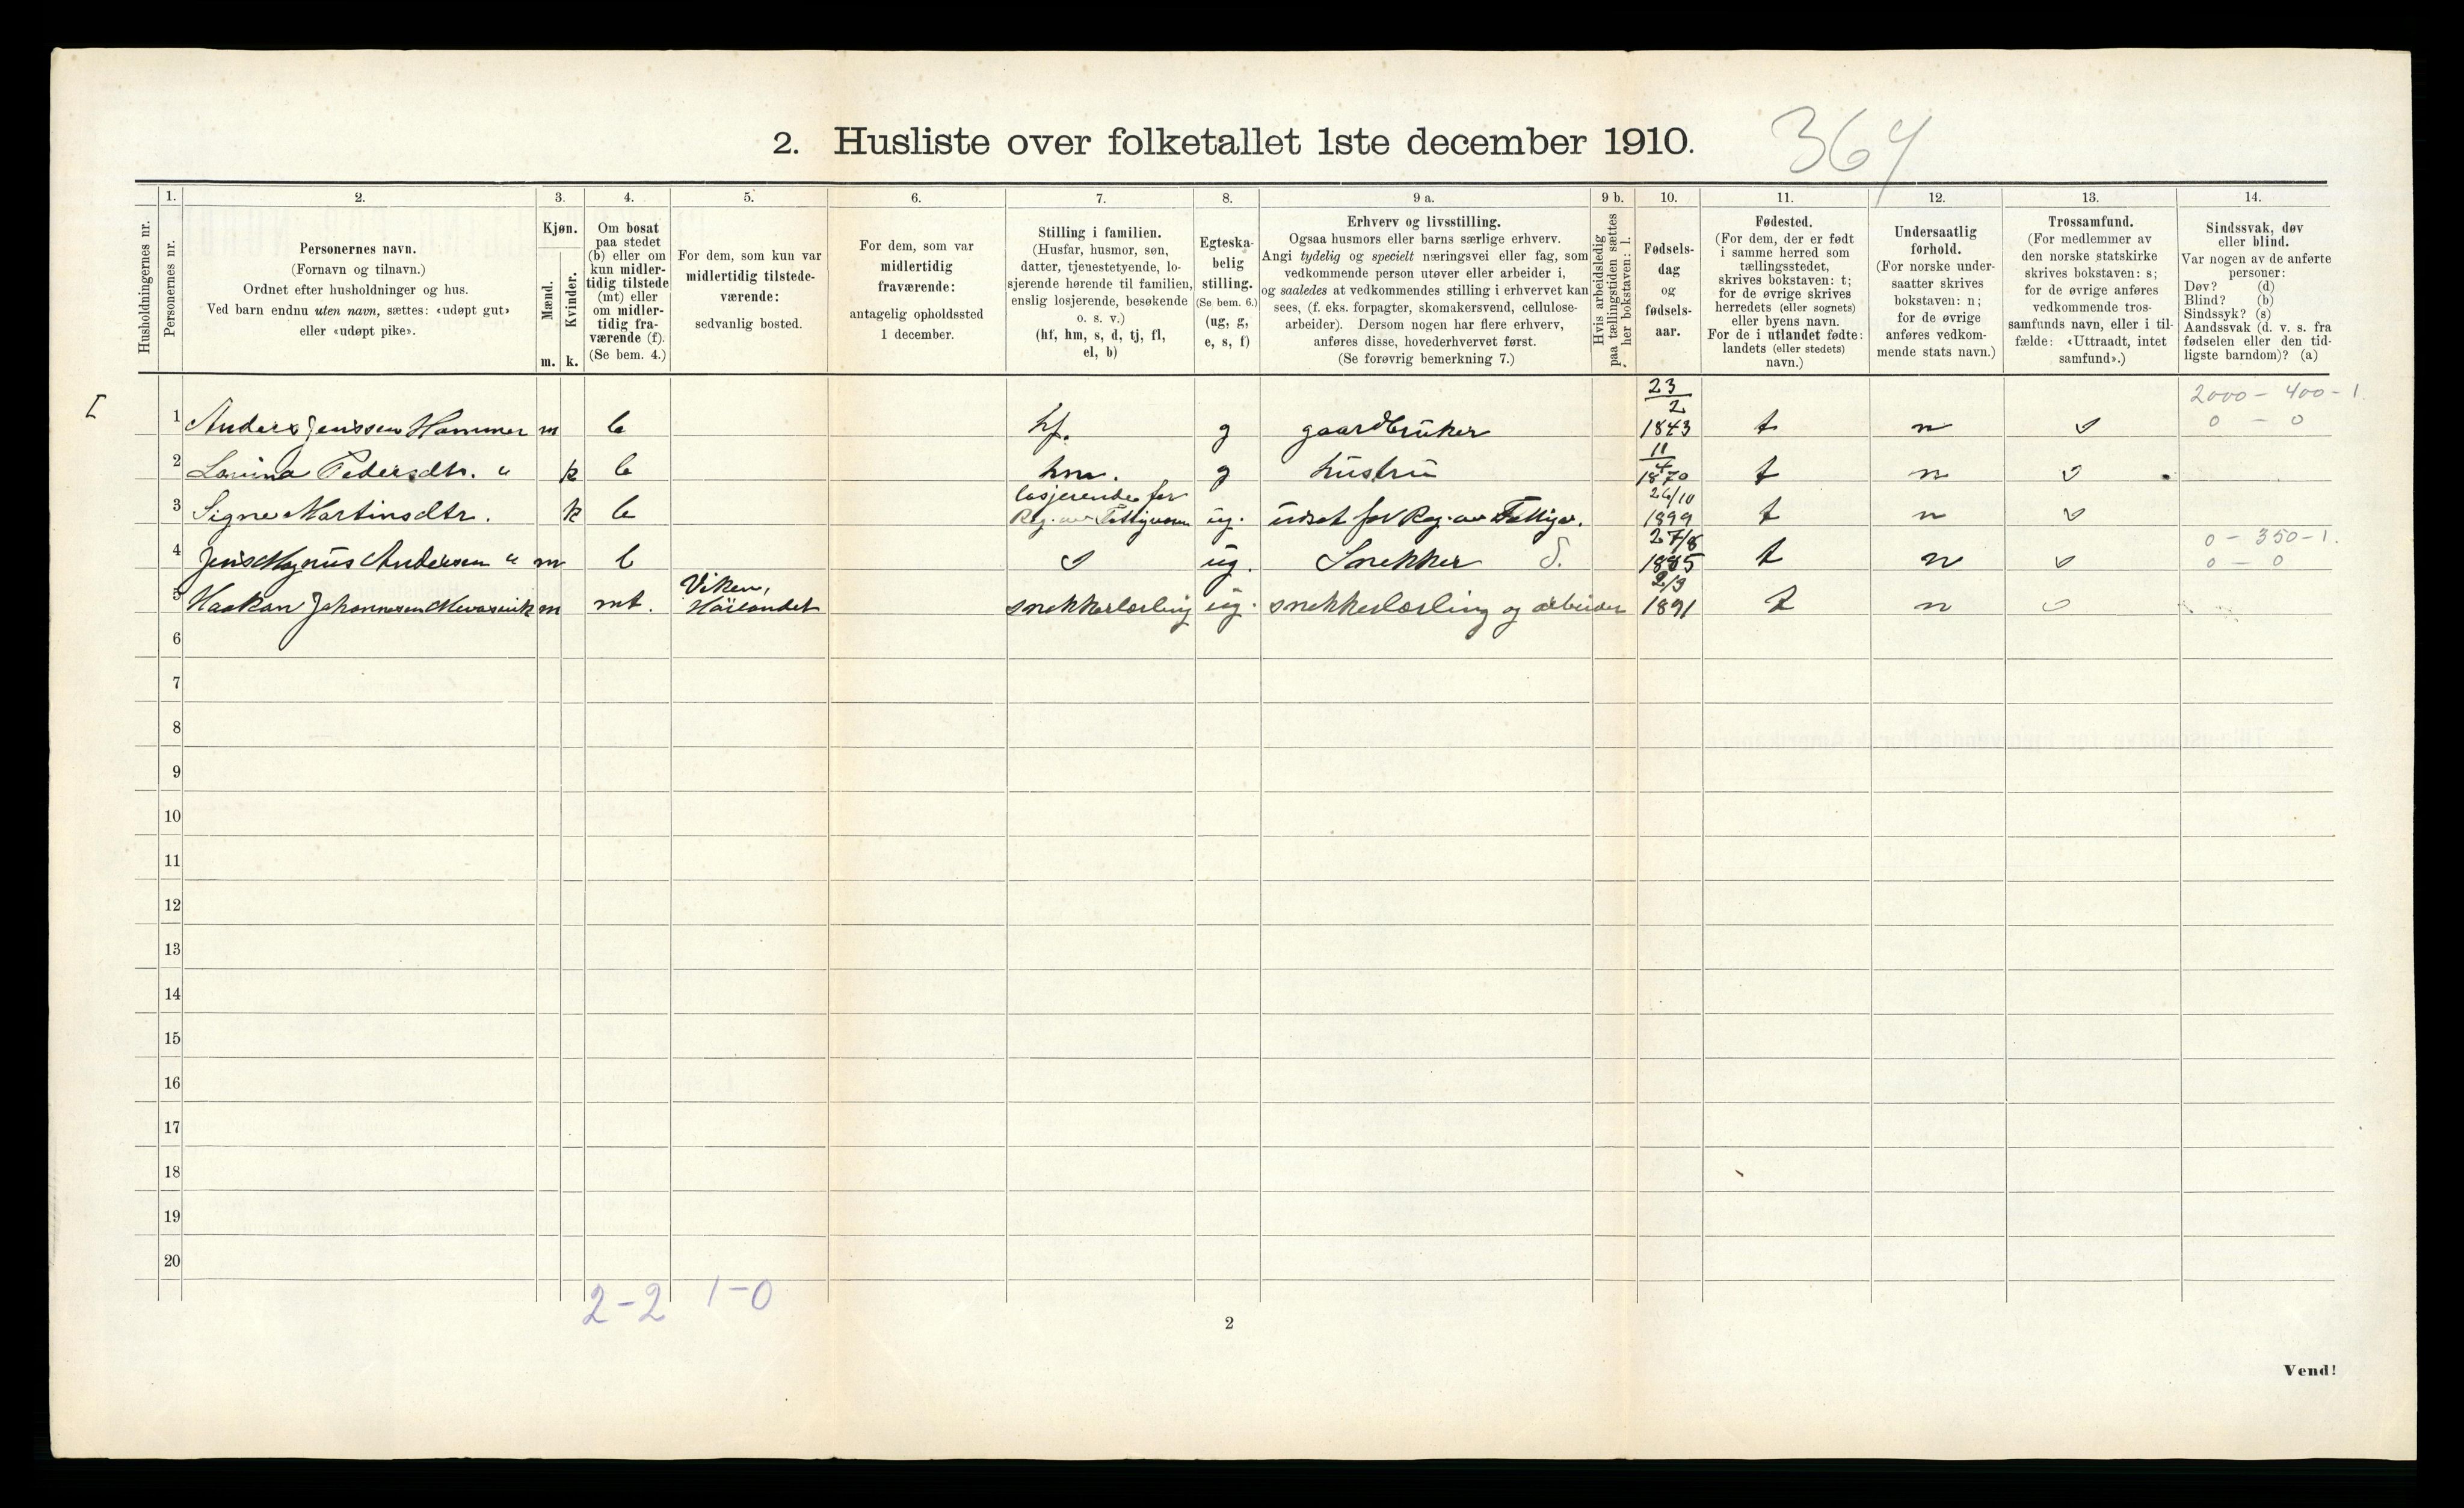 2. Husliste over folketallet 1ste december 1910.
364
Husholdningernes nr.
1.
Personernes nr.
2.
Personernes navn.
(Fornavn og tilnavn.)
Ordnet efter husholdninger og hus.
Ved barn endnu uten navn, sættes: «udøpt gut»
eller «udøpt pike».
3.
Kjøn.
Mænd.
Kvinder.
m. k.
4.
Om bosat
paa stedet
(b) eller om
kun midler-
tidig tilstede
(mt) eller
om midler-
tidig fra-
værende (f).
(Se bem. 4.)
5.
For dem, som kun var
midlertidig tilstede-
værende:
sedvanlig bosted.
6.
For dem, som var
midlertidig
fraværende:
antagelig opholdssted
1 december.
7.
Stilling i familien.
(Husfar, husmor, søn,
datter, tjenestetyende, lo-
sjerende hørende til familien,
enslig losjerende, besøkende
o. s. v.)
(hf, hm, s, d, tj, fl,
el, b)
8.
Egteska-
belig
stilling.
(Se bem. 6.)
(ug, g,
e, s, f)
9 a.
Erhverv og livsstilling.
Ogsaa husmors eller barns særlige erhverv.
Angi tydelig og specielt næringsvei eller fag, som
vedkommende person utøver eller arbeider i,
og saaledes at vedkommendes stilling i erhvervet kan
sees, (f. eks. forpagter, skomakersvend, cellulose-
arbeider). Dersom nogen har flere erhverv,
anføres disse, hovederhvervet først.
(Se forøvrig bemerkning 7.)
9 b.
Hvis arbeidsledig
paa tællingstiden sættes
her bokstaven: l.
10.
Fødsels-
dag
og
fødsels-
aar.
11.
Fødested.
(For dem, der er født
i samme herred som
tællingsstedet,
skrives bokstaven: t;
for de øvrige skrives
herredets (eller sognets)
eller byens navn.
For de i utlandet fødte:
landets (eller stedets)
navn.)
12.
Undersaatlig
forhold.
(For norske under-
saatter skrives
bokstaven: n;
for de øvrige
anføres vedkom-
mende stats navn.)
13.
Trossamfund.
(For medlemmer av
den norske statskirke
skrives bokstaven: s;
for de øvrige anføres
vedkommende tros-
samfunds navn, eller i til-
fælde: «Uttraadt, intet
samfund».)
14.
Sindssvak, døv
eller blind.
Var nogen av de anførte
personer:
Døv? (d)
Blind? (b)
Sindssyk? (s)
Aandssvak (d. v. s. fra
fødselen eller den tid-
ligste barndom)? (a)
I
1 Anders Jenssen Hammer m b hf. g gaardbruker 23/2 1843 t n s 2000 - 400 - 1.
0 - 0
2 Lovina Pedersdtr. " k b hm. g hustru 11/4 1870 t n s
3 Signe Martinsdtr. k b losjerende for Reg. av Fattigvæsen ug. utsat for Reg. av Fattigv. 26/10 1899 t n s
4 Jens Magnus Andersen " m b s ug. Snekker S. 27/8 1885 t n s 0 - 350 - 1.
0 - 0
5 Haakon Johannesen m mt. Viken, Höilandet snekkerlærling ug. snekkerlærling og arbeider 2/9 1891 t n s
6
7
8
9
10
11
12
13
14
15
16
17
18
19
20
2-2 1-0
2
Vend!